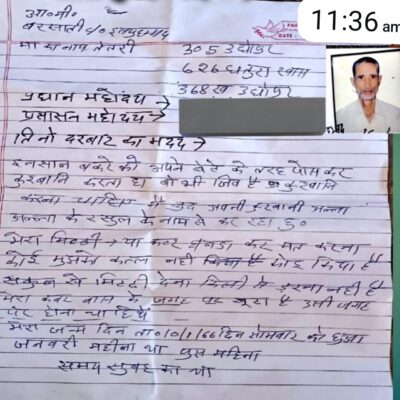 11:36 am
आ०मी०
बरसाती
मा का नाम
305 उद्योपुर
626
368 ख उद्योपुर
प्रधान महोदय →
प्रसासन महोदय →
तिनो दरबार का मदद →
इनसान बकरे को अपने बेटे के तरह पोस कर
कुरबानि करता है वो भी जिव है कुरबानि
करना चाहिए मै खुद अपनी कुरबानी अल्ला
अल्ला के रसुल के नाम से कर रहा हु०
मेरा मिटटी या कबर घबडा कर मत करना
कोई मुझको कतल नही किया है
सकुल से मिटटी देना किसी से डरना नही है
मेरा कबर के जगह पर खुटा है उसी जगह
पर होना चाहिये
मेरा जन्म दिन ता० 10/1/66 दिन सोमवार को हुआ
जनवरी महीना था पुस महिना
समय सुबह का था